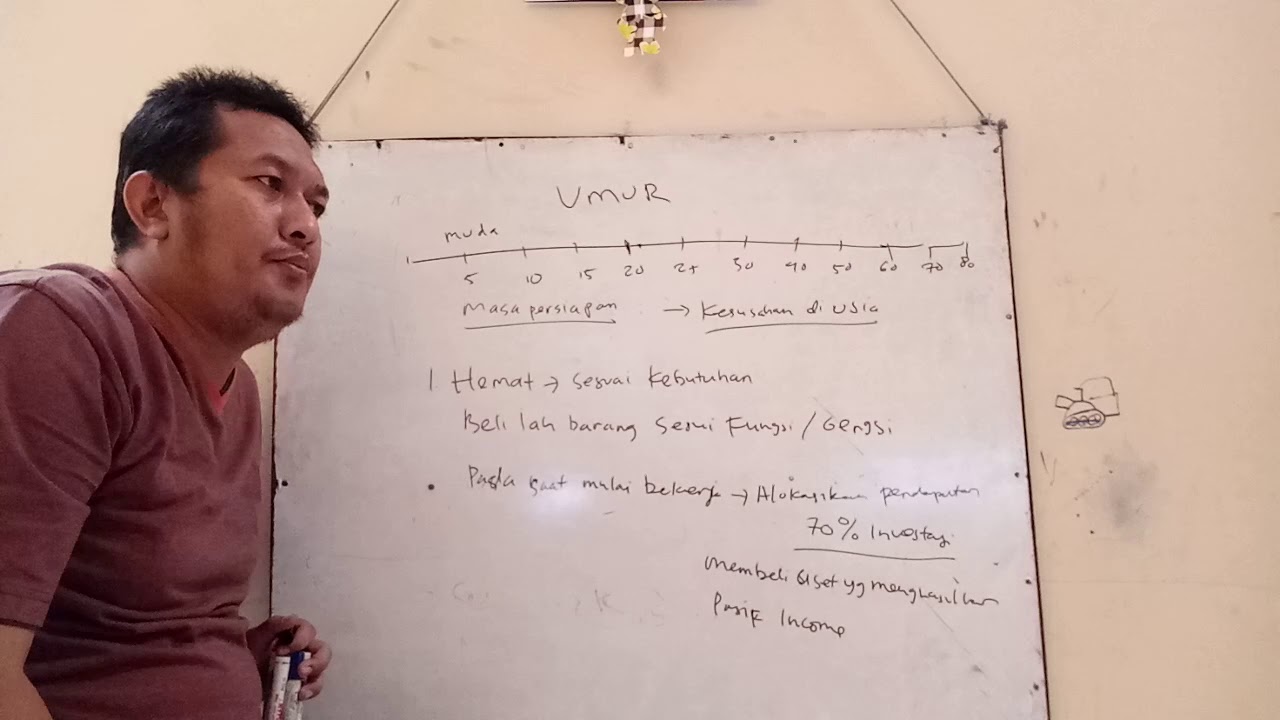 UMUR
muda
5 10 15 20 25 30 40 50 60 70 80
Masa persiapan → Kesusahan di usia
1. Hemat → sesuai kebutuhan
Beli lah barang sesui Fungsi / Gengsi
• Pada saat mulai bekerja → Alokasikan pendapatan
70% Investasi
Membeli aset yg menghasilkan
Pasif Income